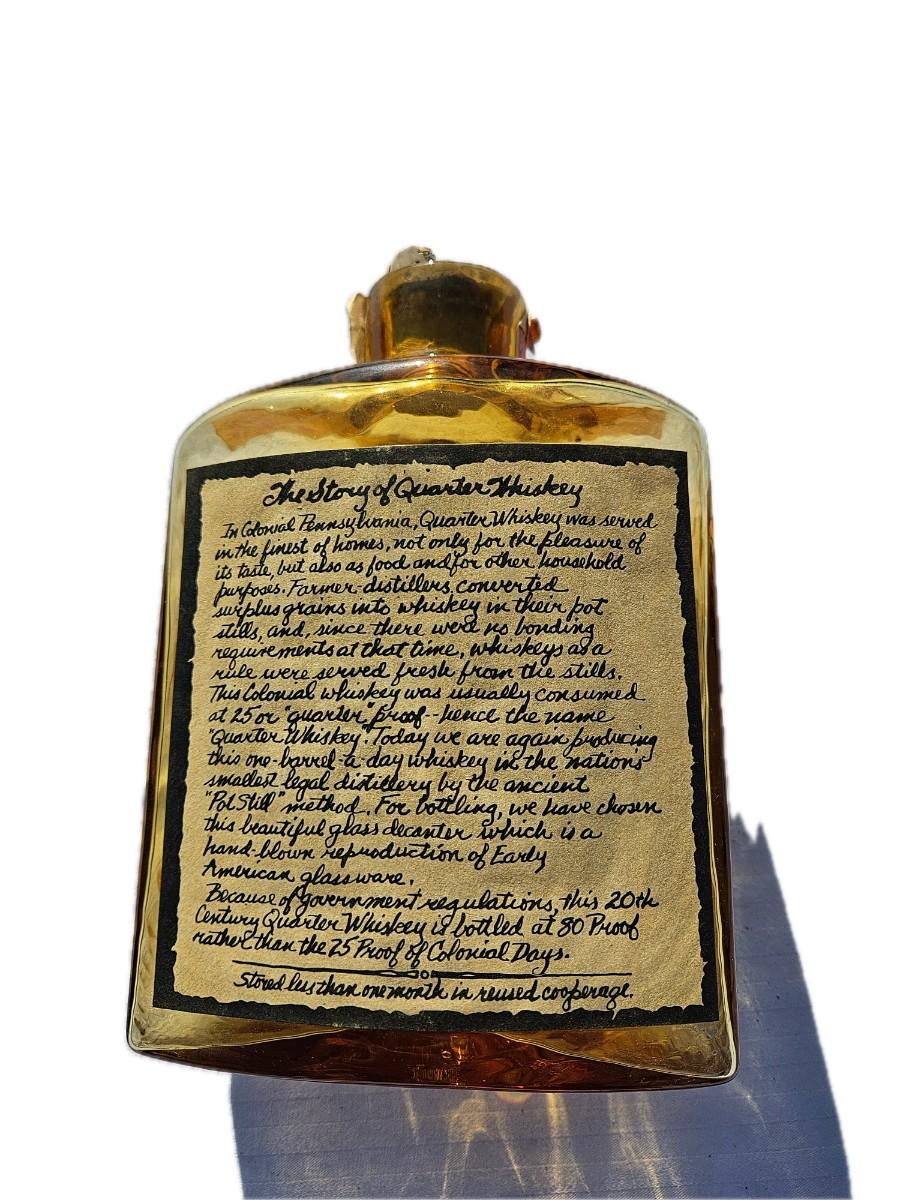 The Story of Quarter Whiskey
In Colonial Pennsylvania, Quarter Whiskey was served
in the finest of homes, not only for the pleasure of
its taste, but also as food and for other household
purposes. Farmer-distillers converted
surplus grains into whiskey in their pot
stills, and, since there were no bonding
requirements at that time, whiskeys as a
rule were served fresh from the stills.
This Colonial whiskey was usually consumed
at 25 or "quarter" proof--hence the name
"Quarter Whiskey". Today we are again producing
this one-barrel-a-day whiskey in the nation's
smallest legal distillery by the ancient
"Pot Still" method. For bottling, we have chosen
this beautiful glass decanter which is a
hand-blown reproduction of Early
American glassware.
Because of government regulations, this 20th
Century Quarter Whiskey is bottled at 80 Proof
rather than the 25 Proof of Colonial Days.
Stored less than one month in reused cooperage.